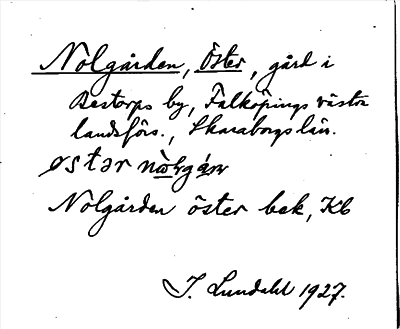 Nolgården, Öster, gård i
Bestorps by, Falköpings västra
landsförs., Skaraborgs län.
østər
Nolgården öster bek, Kb
J. Lundahl 1927.